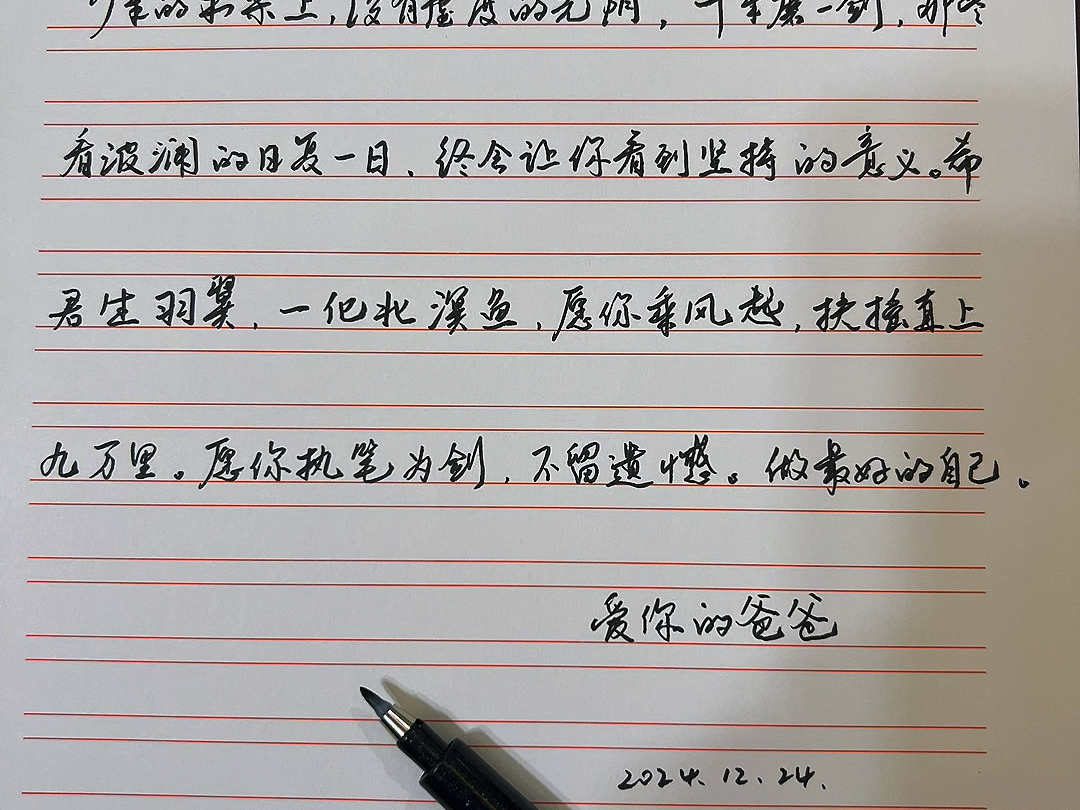 少年的上，没有虚度的光阴，十年磨一剑，那些
看波澜的日复一日，终会让你看到坚持的意义。希
君生羽翼，一化北溟鱼，愿你乘风起，扶摇直上
九万里。愿你执笔为剑，不留遗憾。做最好的自己。
爱你的爸爸
2024.12.24.